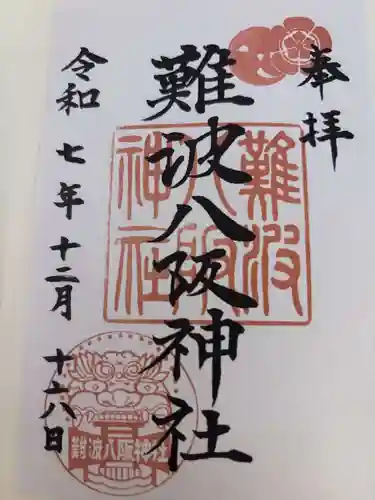 奉拝
難波八阪神社
難波八阪神社
令和七年十二月十六日
難波八阪神社